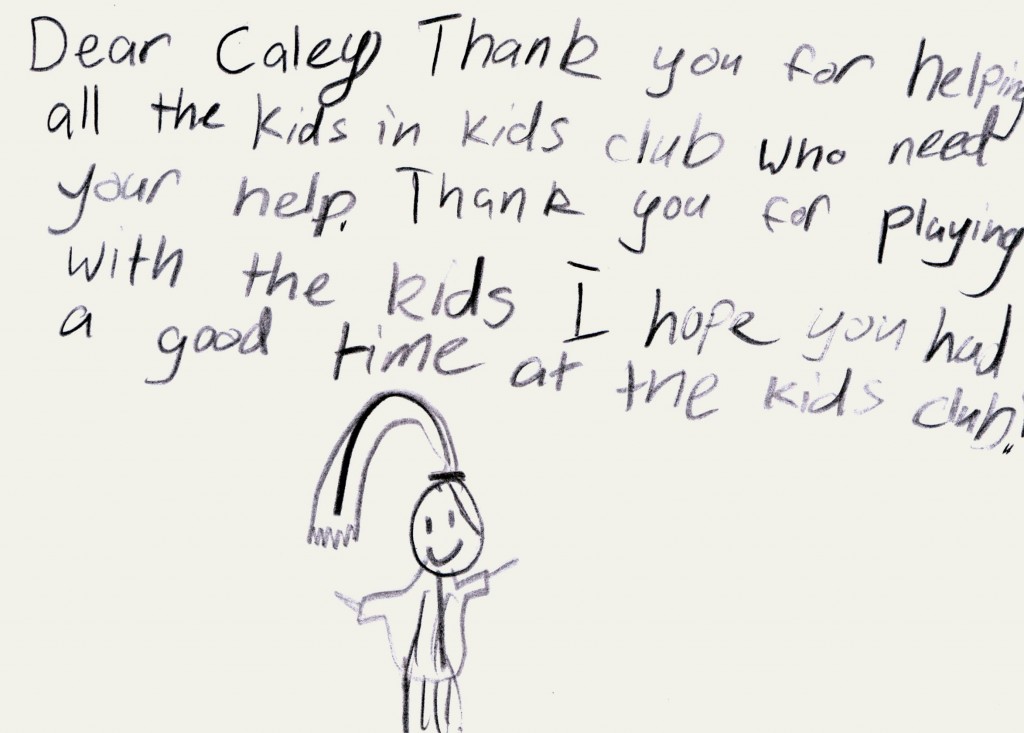 Dear Caley Thank you for helping
all the kids in kids club who need
your help. Thank you for playing
with the kids I hope you had
a good time at the kids club!!